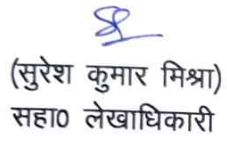 (सुरेश कुमार मिश्रा)
सहा0 लेखाधिकारी